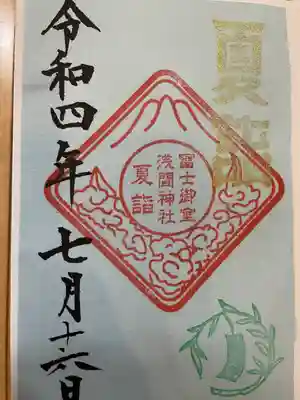 冨士御室
浅間神社
夏詣
令和四年七月十六日